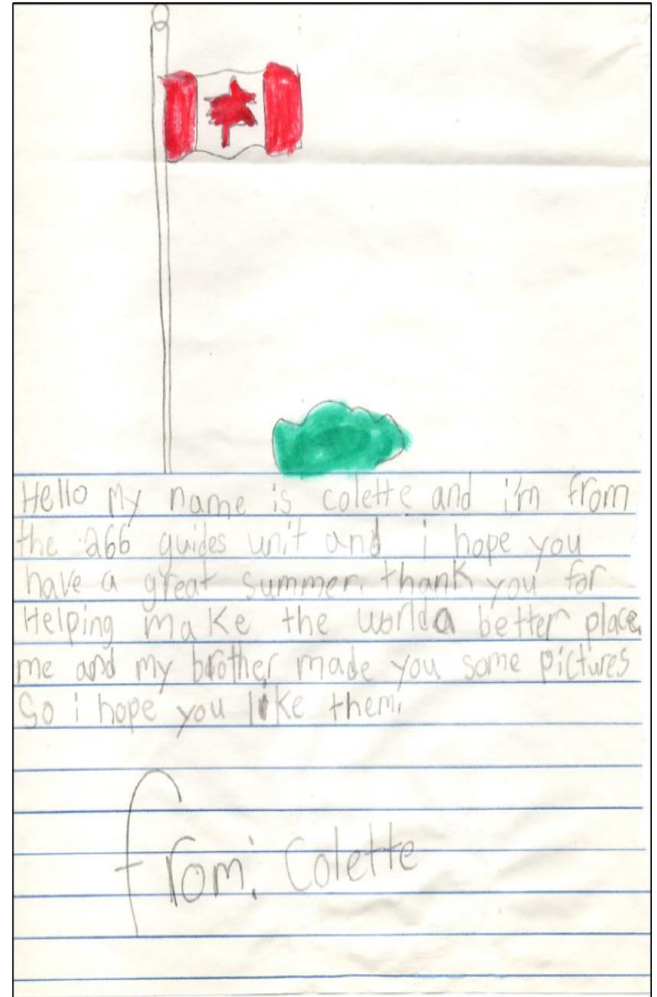 Hello My name is colette and i'm from
the 266 guides unit and i hope you
have a great summer. thank you for
Helping make the world a better place.
me and my brother made you some pictures
So i hope you like them.
from: Colette